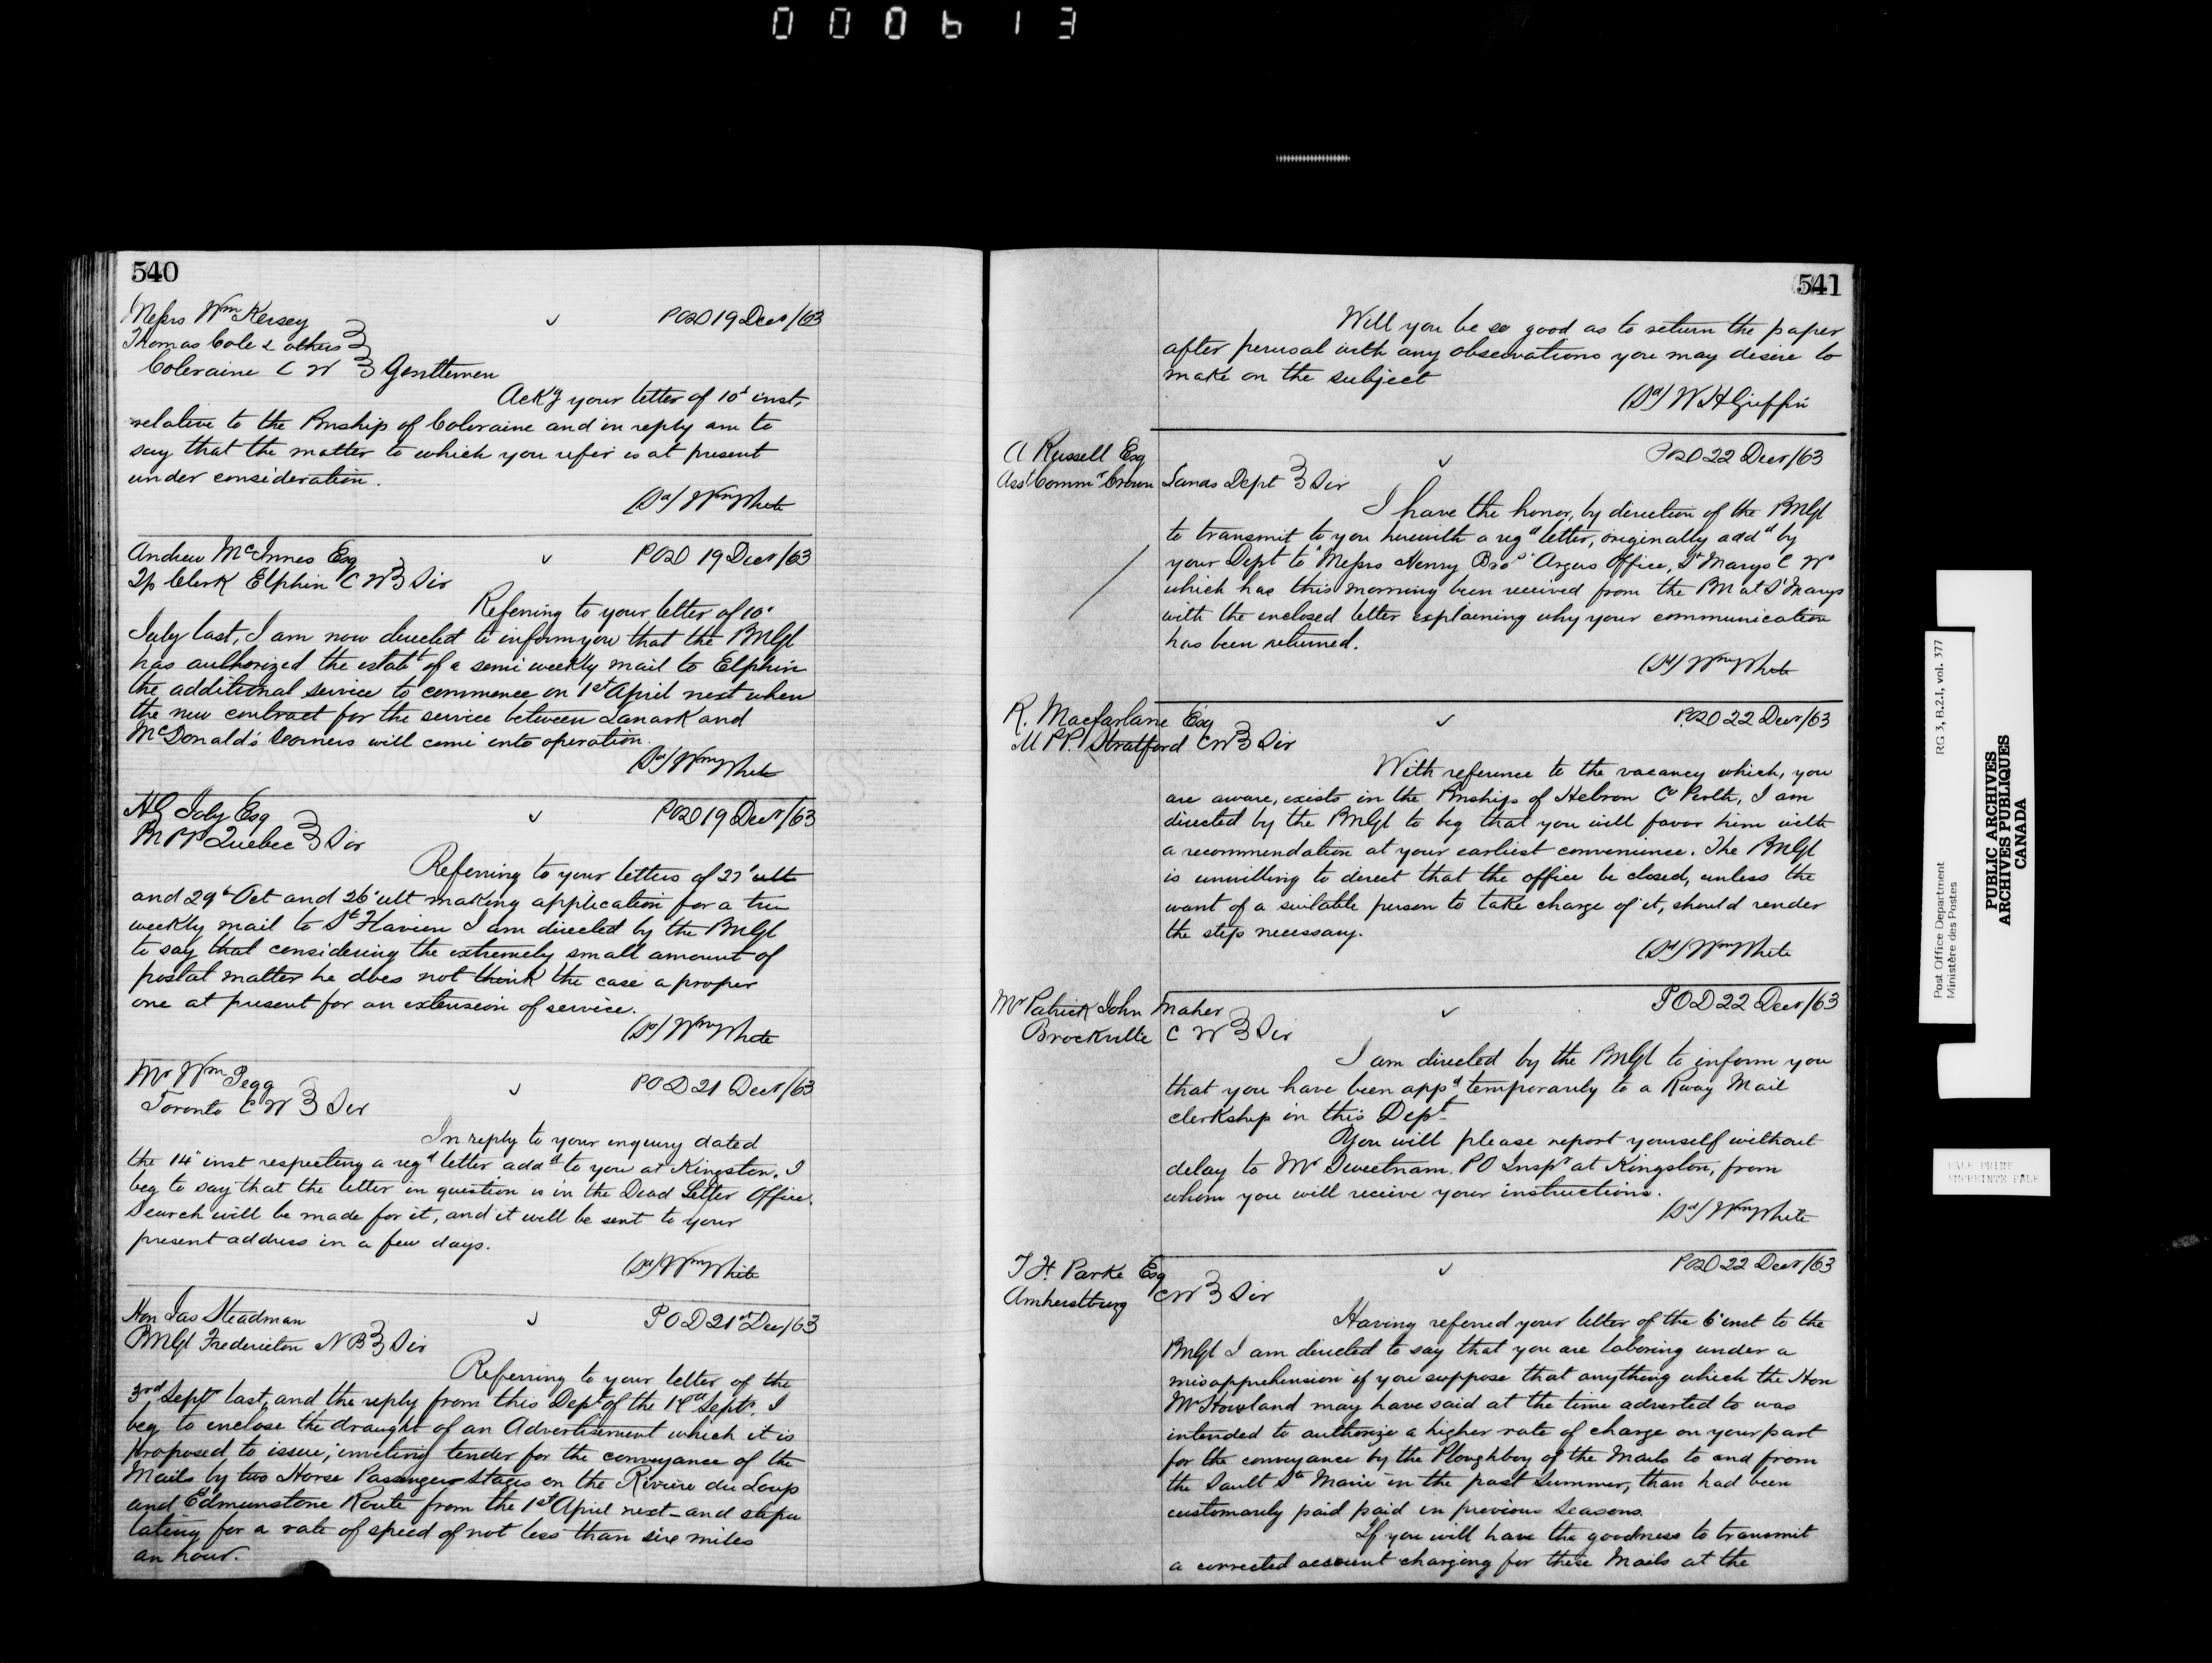 000613
540
Messrs Wm Kersey
Thomas Cole & others
Coleraine C W } Gentlemen
POD 19 Decr/63
Ackg your letter of 10' inst,
relative to the Pmship of Coleraine and in reply am to
say that the matter to which you refer is at present
under consideration.
(Sd) Wm White
Andrew McInnes Esq
Tp Clerk Elphin C W } Sir
POD 19 Decr/63
Referring to your letter of 10'
July last, I am now directed to inform you that the PMGl
has authorized the estabt of a semi weekly mail to Elphin
the additional service to commence on 1st April next when
the new contract for the service between Lanark and
McDonald's Corners will come into operation.
(Sd) Wm White
HG Joly Esq
M PP Quebec } Sir
POD 19 Decr/63
Referring to your letters of 27' ult
and 29' Oct and 26' ult making application for a tri
weekly mail to St Flavien I am directed by the PMGl
to say that considering the extremely small amount of
postal matter he does not think the case a proper
one at present for an extension of service.
(Sd) Wm White
Mr Wm Pegg
Toronto C W } Sir
POD 21 Decr/63
In reply to your enquiry dated
the 14" inst respecting a regd letter addd to you at Kingston, I
beg to say that the letter in question is in the Dead Letter Office.
Search will be made for it, and it will be sent to your
present address in a few days.
(Sd) Wm White
Hon Jas Steadman
PMGl Fredericton N B } Sir
POD 21st Dec/63
Referring to your letter of the
3rd Septr last, and the reply from this Dept of the Septr. I
beg to enclose the draught of an Advertisement which it is
proposed to issue, inviting tender for the conveyance of the
Mails by two Horse Passenger Stages on the Riviere du Loup
and Edmunstone Route from the 1st April next - and stipu
lating for a rate of speed of not less than six miles
an hour.
541
Will you be so good as to return the paper
after perusal with any observations you may desire to
make on the subject
(Sd) W H Griffin
A Russell Esq
Asst Commr Crown Lands Dept } Sir
POD 22 Decr/63
I have the honor, by direction of the PMGl
to transmit to you herewith a regd letter, originally addd by
your Dept to "Messrs Henry Bros" Argus Office, St Marys C W
which has this morning been received from the PM at St Marys
with the enclosed letter explaining why your communication
has been returned.
(Sd) Wm White
R. Macfarlane Esq
M PP. Stratford CW } Sir
POD 22 Decr/63
With reference to the vacancy which, you
are aware, exists in the Pmship of Hebron Co Perth, I am
directed by the PMGl to beg that you will favor him with
a recommendation at your earliest convenience. The PMGl
is unwilling to direct that the office be closed, unless the
want of a suitable person to take charge of it, should render
the step necessary.
(Sd) Wm White
Mr Patrick John Maher
Brockville C W } Sir
POD 22 Decr/63
I am directed by the PMGl to inform you
that you have been appd temporarily to a Rway Mail
clerkship in this Dept
You will please report yourself without
delay to Mr Sweetnam. PO Inspr at Kingston, from
whom you will receive your instructions.
(Sd) Wm White
T H. Parke Esq
Amherstburg CW } Sir
POD 22 Decr/63
Having referred your letter of the 6' inst to the
PMGl I am directed to say that you are laboring under a
misapprehension if you suppose that anything which the Hon
Mr Howland may have said at the time adverted to was
intended to authorize a higher rate of charge on your part
for the conveyance by the Ploughboy of the Mails to and from
the Sault Ste Marie in the past Summer, than had been
customarily paid paid in previous Seasons.
If you will have the goodness to transmit
a corrected account charging for these Mails at the
Post Office Department
Ministère des Postes
RG 3, B.2.1, vol. 377
PUBLIC ARCHIVES
ARCHIVES PUBLIQUES
CANADA
PALE PRINT